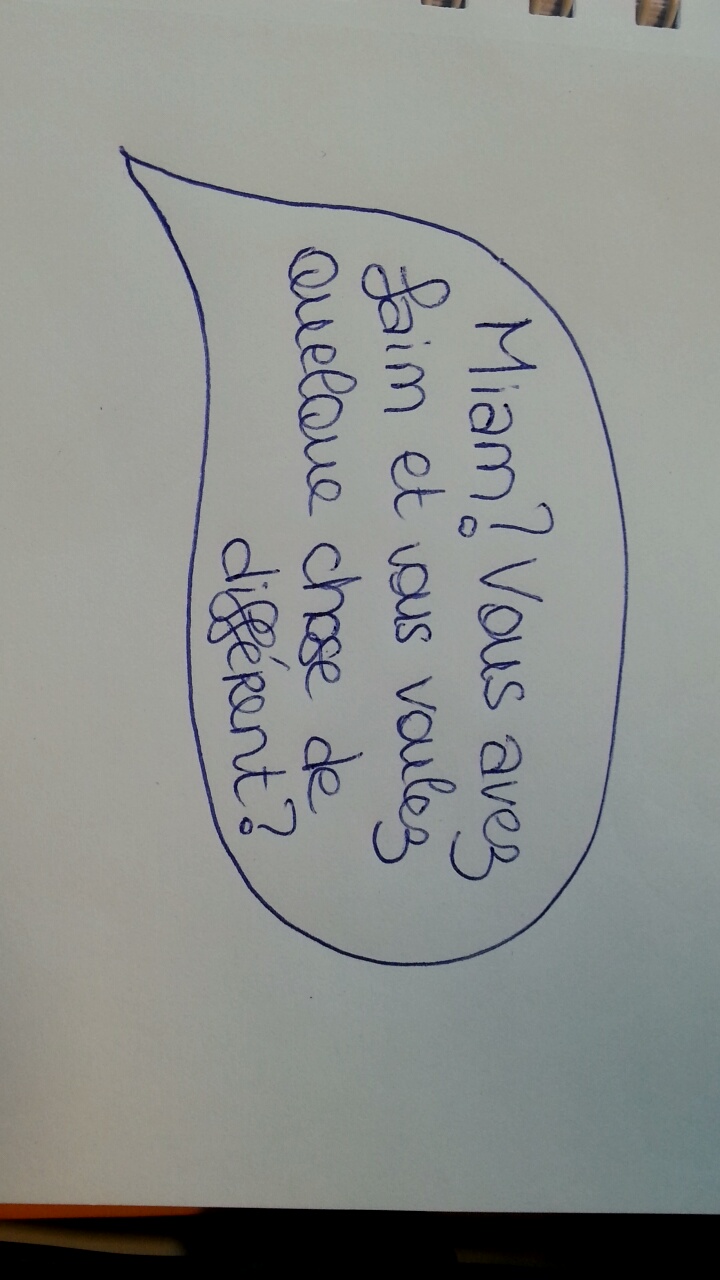 Miam? Vous avez
faim et vous voulez
quelque chose de
différent?